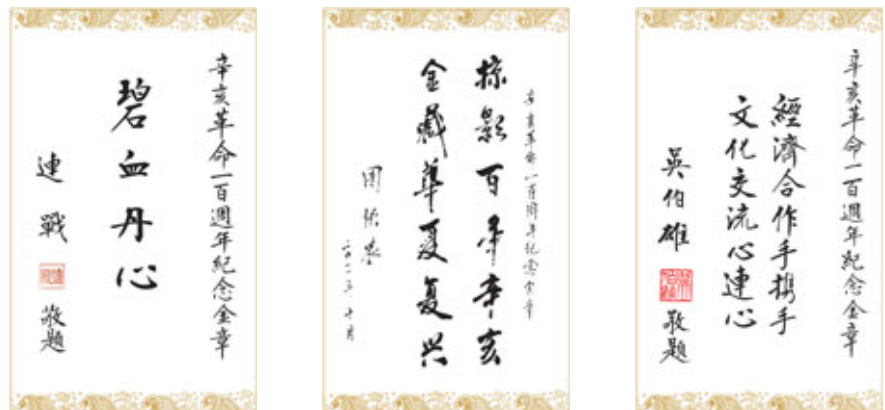 辛亥革命一百週年紀念金章
碧血丹心
連戰 敬題
辛亥革命一百周年纪念金章
掠影百年辛亥
金藏華夏复兴
二〇一一年十月
辛亥革命一百週年紀念金章
經濟合作手攜手
文化交流心連心
吳伯雄 敬題